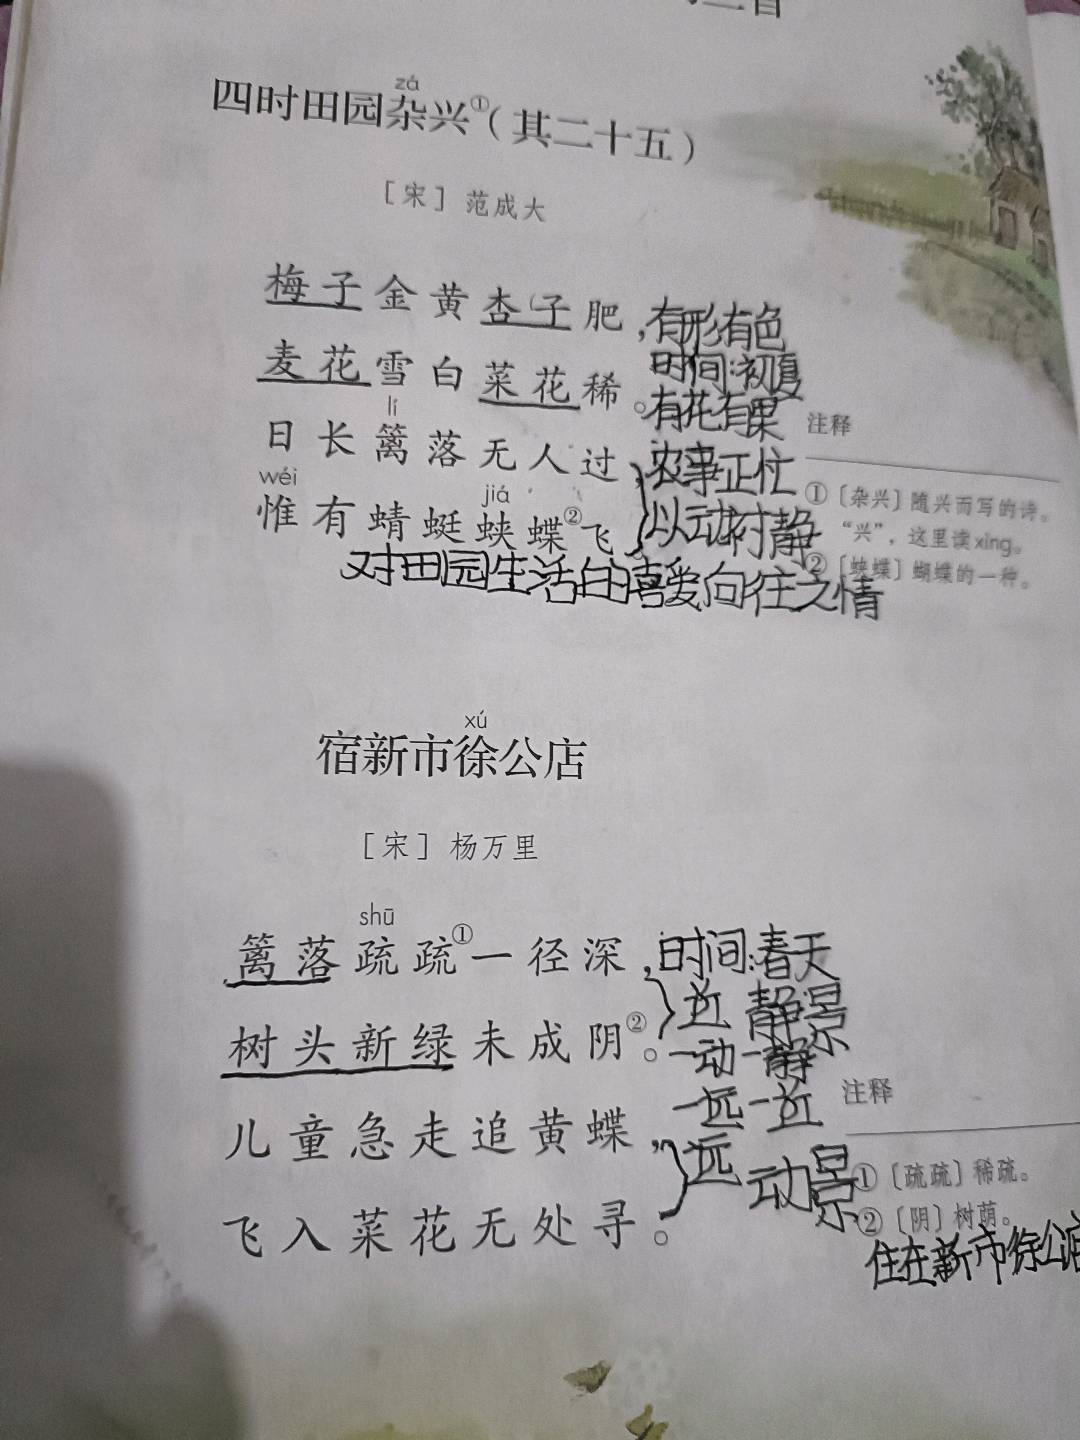 二首
zá
四时田园杂兴①（其二十五）
［宋］范成大
梅子金黄杏子肥，有形有色
时间:初夏
麦花雪白菜花稀。有花有果
注释
lí
日长篱落无人过，农事正忙
①〔杂兴〕随兴而写的诗。
“兴”，这里读xìng。
wéi jiá
惟有蜻蜓蛱蝶②飞。以动衬静
②〔蛱蝶〕蝴蝶的一种。
对田园生活的喜爱向往之情
xú
宿新市徐公店
［宋］杨万里
shū
篱落疏疏①一径深，时间:春天
近 静景
树头新绿未成阴②。一动一静
一远一近
注释
儿童急走追黄蝶，远 动景
①〔疏疏〕稀疏。
②〔阴〕树荫。
飞入菜花无处寻。
住在新市徐公店